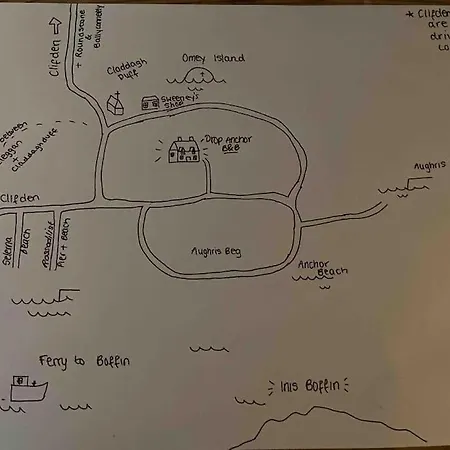 * Clifden
are
Clifden
+ Roundstone
&
Ballyconneely
Claddagh
Duff
Omey Island
Sweeney's
Shop
between
Claddaghduff
Drop Anchor
B&B
Aughris
Clifden
Selerna
Beach
Pier + Beach
Aughris Beg
Anchor
Beach
Ferry to Boffin
Inis Boffin